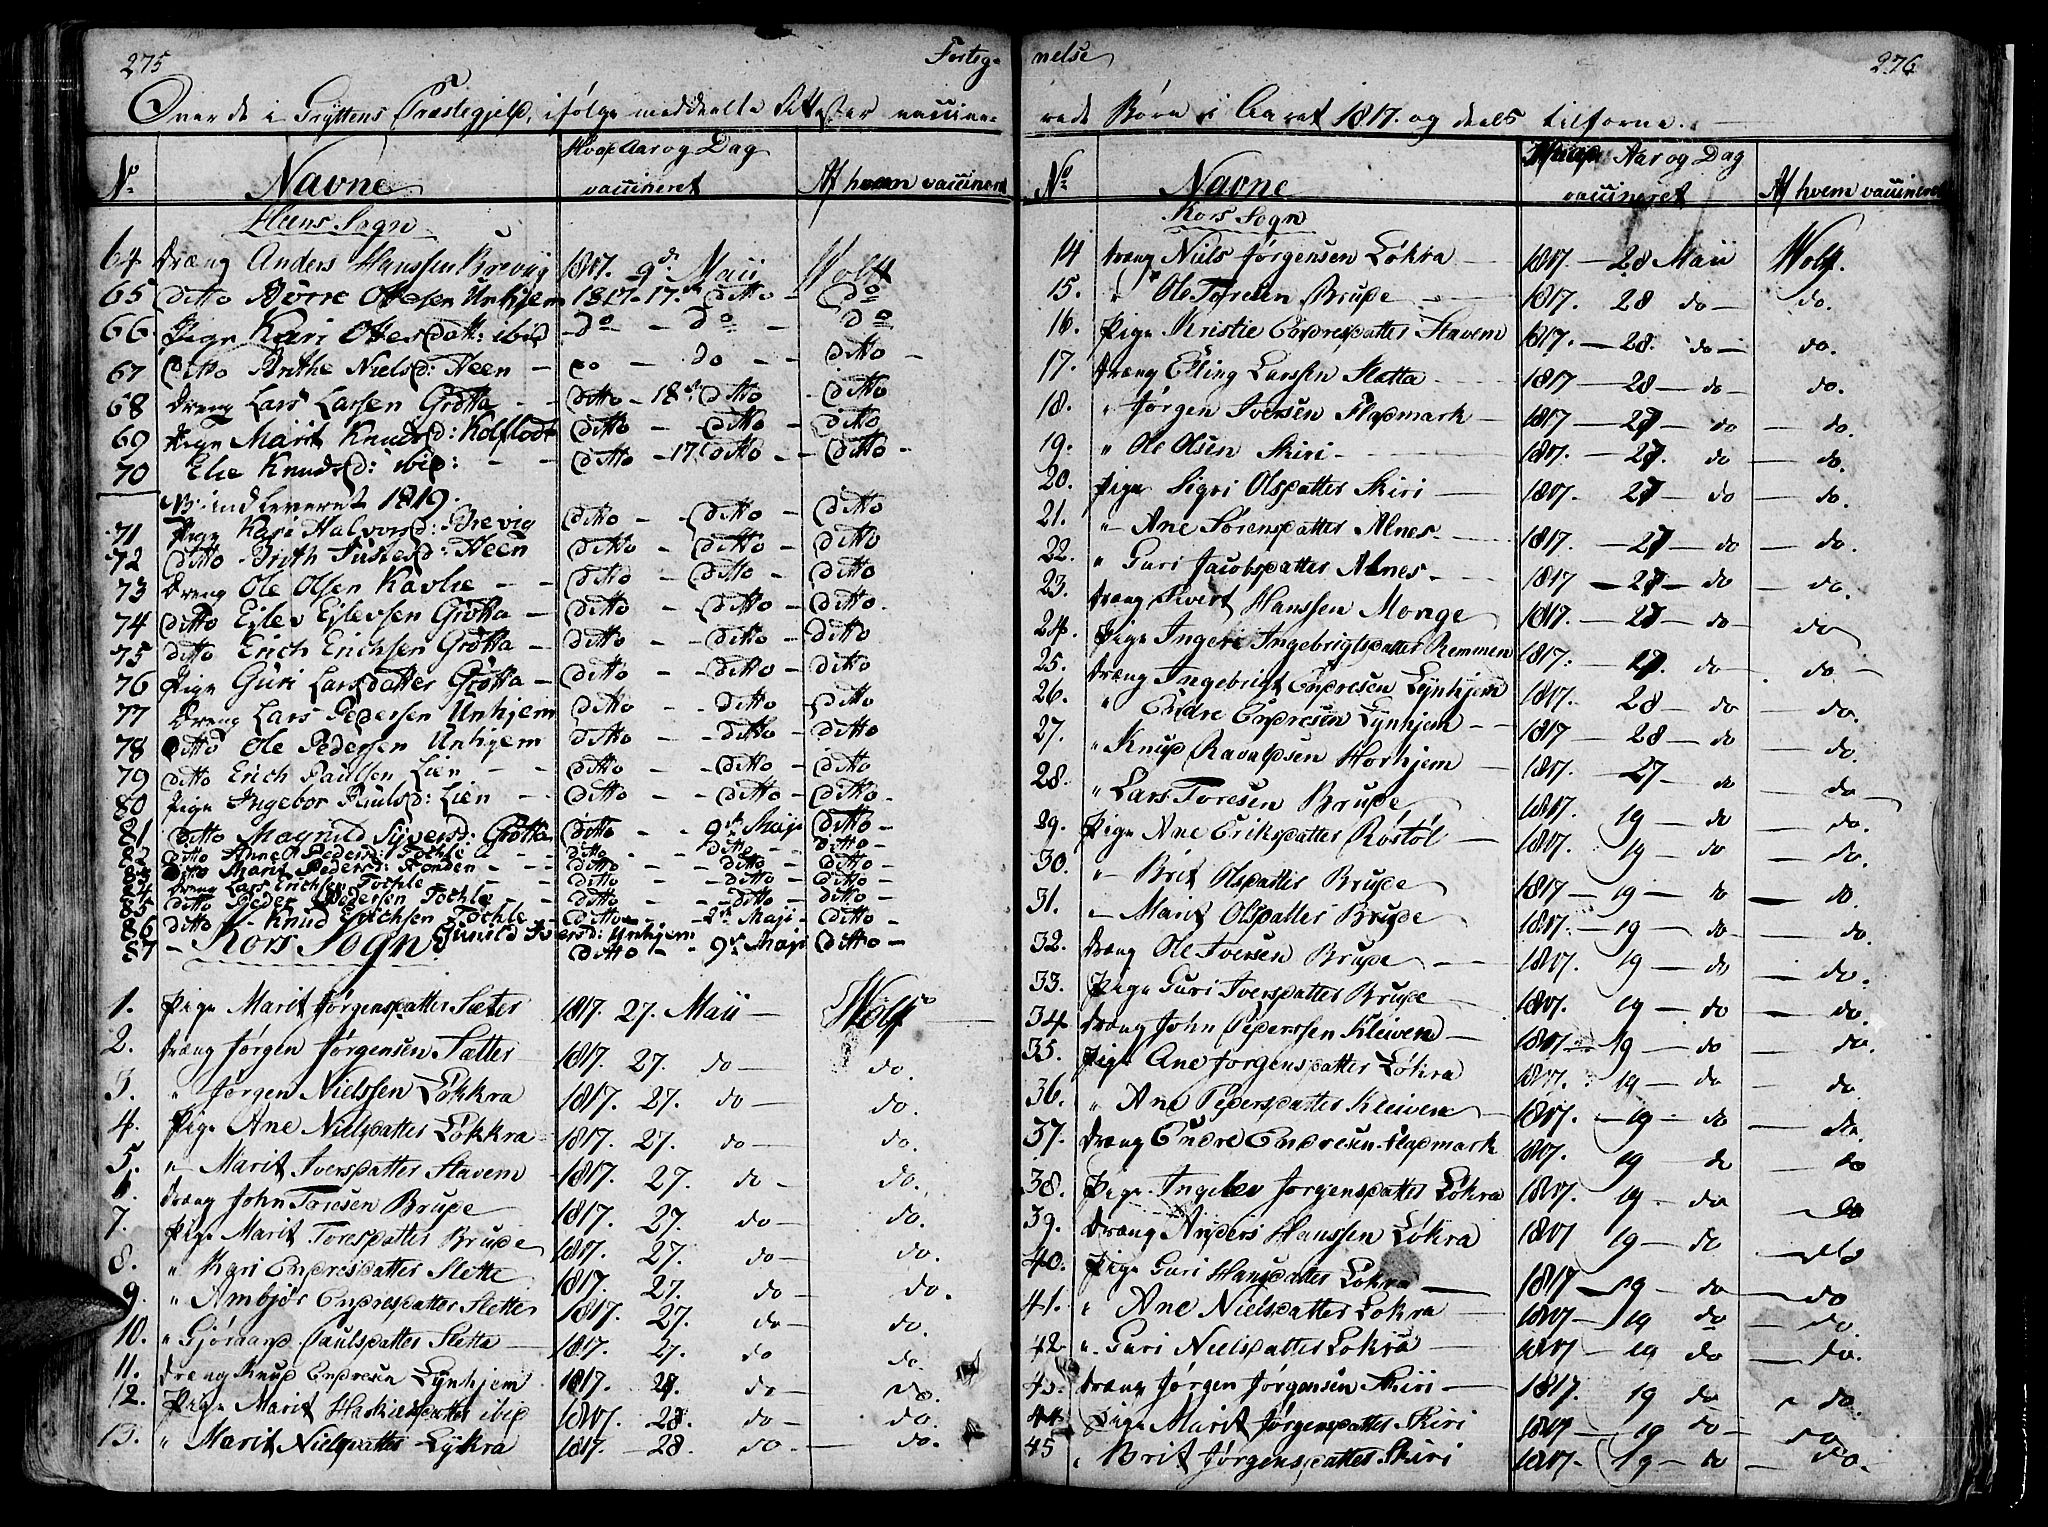 275
Forteg-
Over de i Gryttens Præstegjeld, ifølge meddeelte Attester vaccine-
No Navne Hvad Aar og Dag vaccineret Af hvem vaccineret
Heens Sogn
64 Dræng Anders Hanssen Brevig 1817. 9de Maii Wolff
65 Ditto Børre Ottesen Unhjem 1817. 17de Ditto Do
66. Pige Kari Ottersdatt: ibid Do - Do - Do
67 Ditto Brithe Nielsd: Heen - Do - do - - Ditto -
68 Dreng Lars Larsen Grötta - - Ditto - 18de Ditto - Ditto
69 Pige Marit Knudsd: Kolflodt Ditto - Ditto - Ditto
70 Elie Knudsd: ibid: - - Ditto - 17 Ditto - Ditto -
NB: indleveret 1819.
71 Pige Kari Halvorsd: Brevig Ditto - Ditto - Ditto
72 Ditto Brith Justesd: Heen Ditto - Ditto - Ditto
73 Dreng Ole Olsen Kavlie - - Ditto - Ditto - Ditto
74 Ditto Ejlev Ejlevsen Grötta - Ditto - - Ditto - Ditto.
75 Ditto Erich Erichsen Grötta - Ditto - - Ditto - Ditto
76 Pige Guri Larsdatter Grötta - Ditto - - Ditto - Ditto
77 Dreng Lars Pedersen Unhjem Ditto - - Ditto - Ditto
78 Ditto Ole Pedersen Unhjem Ditto - - Ditto - Ditto
79 Ditto Erich Paulsen Lien - - Ditto - - Ditto - Ditto
80 Pige Ingebor Paulsd: Lien - - Ditto - - Ditto - Ditto -
81 Ditto Magnild Sÿversd: Grötta Ditto - - 9de Maji Ditto -
82 Ditto Anne Pedersd: Tochle - - Ditto - - Ditto - Ditto -
83 Ditto Marit Pedersd: Honden - - Ditto - - Ditto - Ditto -
84 Dreng Lars Erichsen Tochle - - Ditto - - Ditto - Ditto -
85 Ditto Peder Pedersen Tochle - - Ditto - - Ditto - Ditto -
86 Ditto Knud Erichsen Tochle - Ditto - - 2de Maji - Ditto -
87 - Gunild Iversd: Unhjem Ditto - - 9de Maji Ditto -
Kors Sogn
1. Pige Marit Jørgensdatter Sæter 1817. 27. Maii - Wolff
2. Dræng Jørgen Jørgensen Sætter - 1817. 27. do - do.
3. " Jørgen Nielssen Løkkra 1817. 27. do - do.
4. Pige Ane Nielsdatter Løkkra 1817. 27. do - do.
5. " Marit Iversdatter Stavem 1817. 27. do - do.
6. Dræng John Toresen Brude 1817. 27. do - do.
7. Pige Marit Toresdatter Brude 1817. 27. do - do.
8. " Kari Endresdatter Slette 1817. 27. do do.
9. " Ambjør Endresdatter Slette 1817. 27. do - do.
10. " Gjøraand Paulsdatter Sletta 1817. 27. do do.
11. Dræng Knud Endresen Lÿnhjem 1817. 27. do - do.
12. Pige Marit Haskielsdatter ibid 1817. 28. do - do.
13. " Marit Nielsdatter Løkra 1817. - 28. do. - do.
nelse
276
rede Børn i Aaret 1817. og deels tilforne.
No Navne Hvad Aar og Dag vaccineret Af hvem vaccineret
Kors Sogn
14 Dræng Niels Jørgensen Løkra - 1817. - 28 Maii Wolff.
15. " Ole Toresen Brude - 1817. 28 do - do.
16. Pige Kristie Endresdatter Stavem 1817. - 28. do - do.
17. Dræng Elling Larssen Sletta - 1817 - 28 - do - do.
18. " Jørgen Iversen Flademark - 1817 - 27 - do - do.
19. " Ole Olsen Skiri - 1817. - 27. do - do.
20. Pige Sigri Olsdatter Skiri - 1817. 27 - do - do.
21. " Ane Sørensdatter Alnes - 1817. - 27 - do - do.
22. " Guri Jacobsdatter Alnes - 1817 - 27 - do - do.
23. Dræng Sivert Hanssen Monge 1817. - 27 - do - do
24. Pige Ingeri Ingebrigtsdatter Remmen 1817. - 27. do - do -
25. Dræng Ingebrigt Endresen Lÿnhjem 1817. - 28 - do - do.
26. " Endre Endresen Lÿnhjem - 1817 - 28 - do - do.
27. " Knud Ravaldsen Horhjem - 1817. - 27 - do - do -
28. " Lars Toresen Brude 1817. 19 - do - do.
29. Pige Ane Eriksdatter Røstøl 1817. 19 - do - do.
30. " Brit Olsdatter Brude 1817 - 19 - do - do.
31. " Marit Olsdatter Brude 1817. - 19 - do - do.
32. Dræng Ole Iversen Brude - 1817. 19 - do - do.
33. Pige Guri Iversdatter Brude - 1817. 19 - do - do.
34 Dræng John Pederssen Kleiven 1817 - 19 - do - do.
35. Pige Ane Jørgensdatter Løkra 1817. 19 - do - do
36. " Ane Pedersdatter Kleiven - 1817. - 19 - do - do.
37. Dræng Endre Endresen Flademark 1817. 19 - do - do
38. Pige Ingeber Jørgensdatter Løkra 1817. 19 - do - do
39. Dræng Anders Hanssen Løkra 1817 19 - do - do
40. Pige Guri Hansdatter Løkra - 1817 - 19 - do - do
41. " Ane Nielsdatter Løkra - 1817 - 19 do - do.
42 " Guri Nielsdatter Løkra - 1817 - 19 do - do.
43. Dræng Jørgen Jørgensen Skiri - 1817. 19 do " do.
44. Pige Marit Jørgensdatter Skiri 1817 - 19 do - do
45 " Brit Jørgensdatter Skiri 1817. - 19 - do - do.